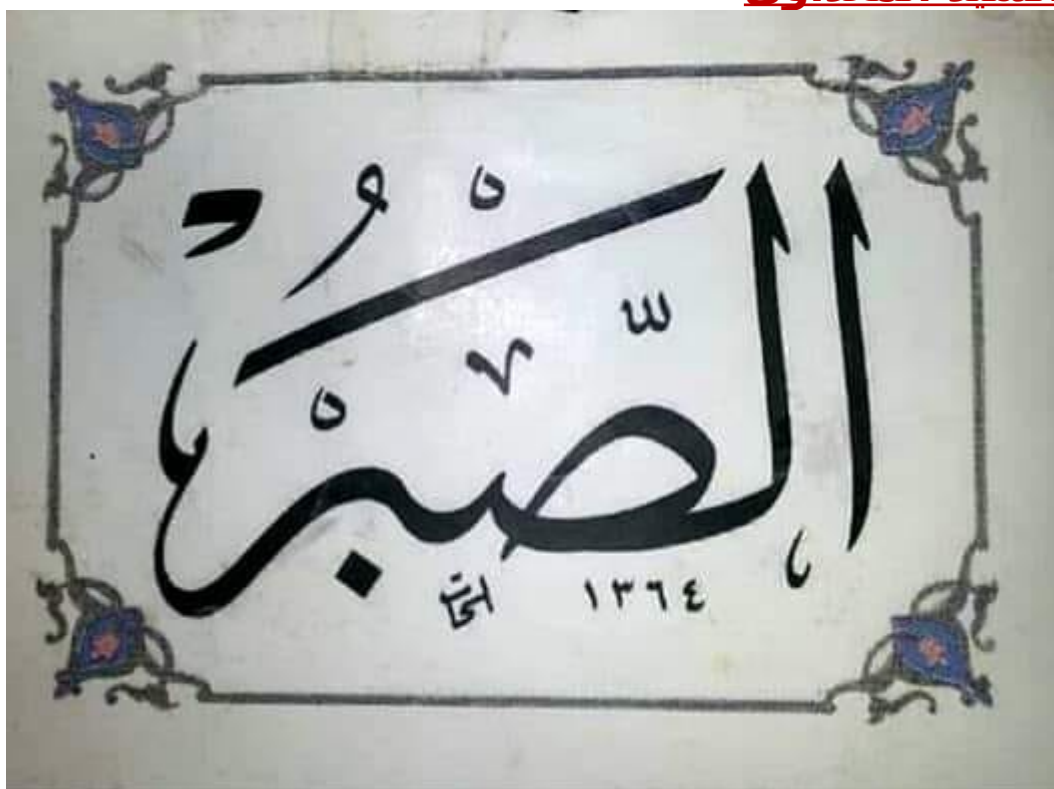 الصَّبْرُ
١٣٦٤